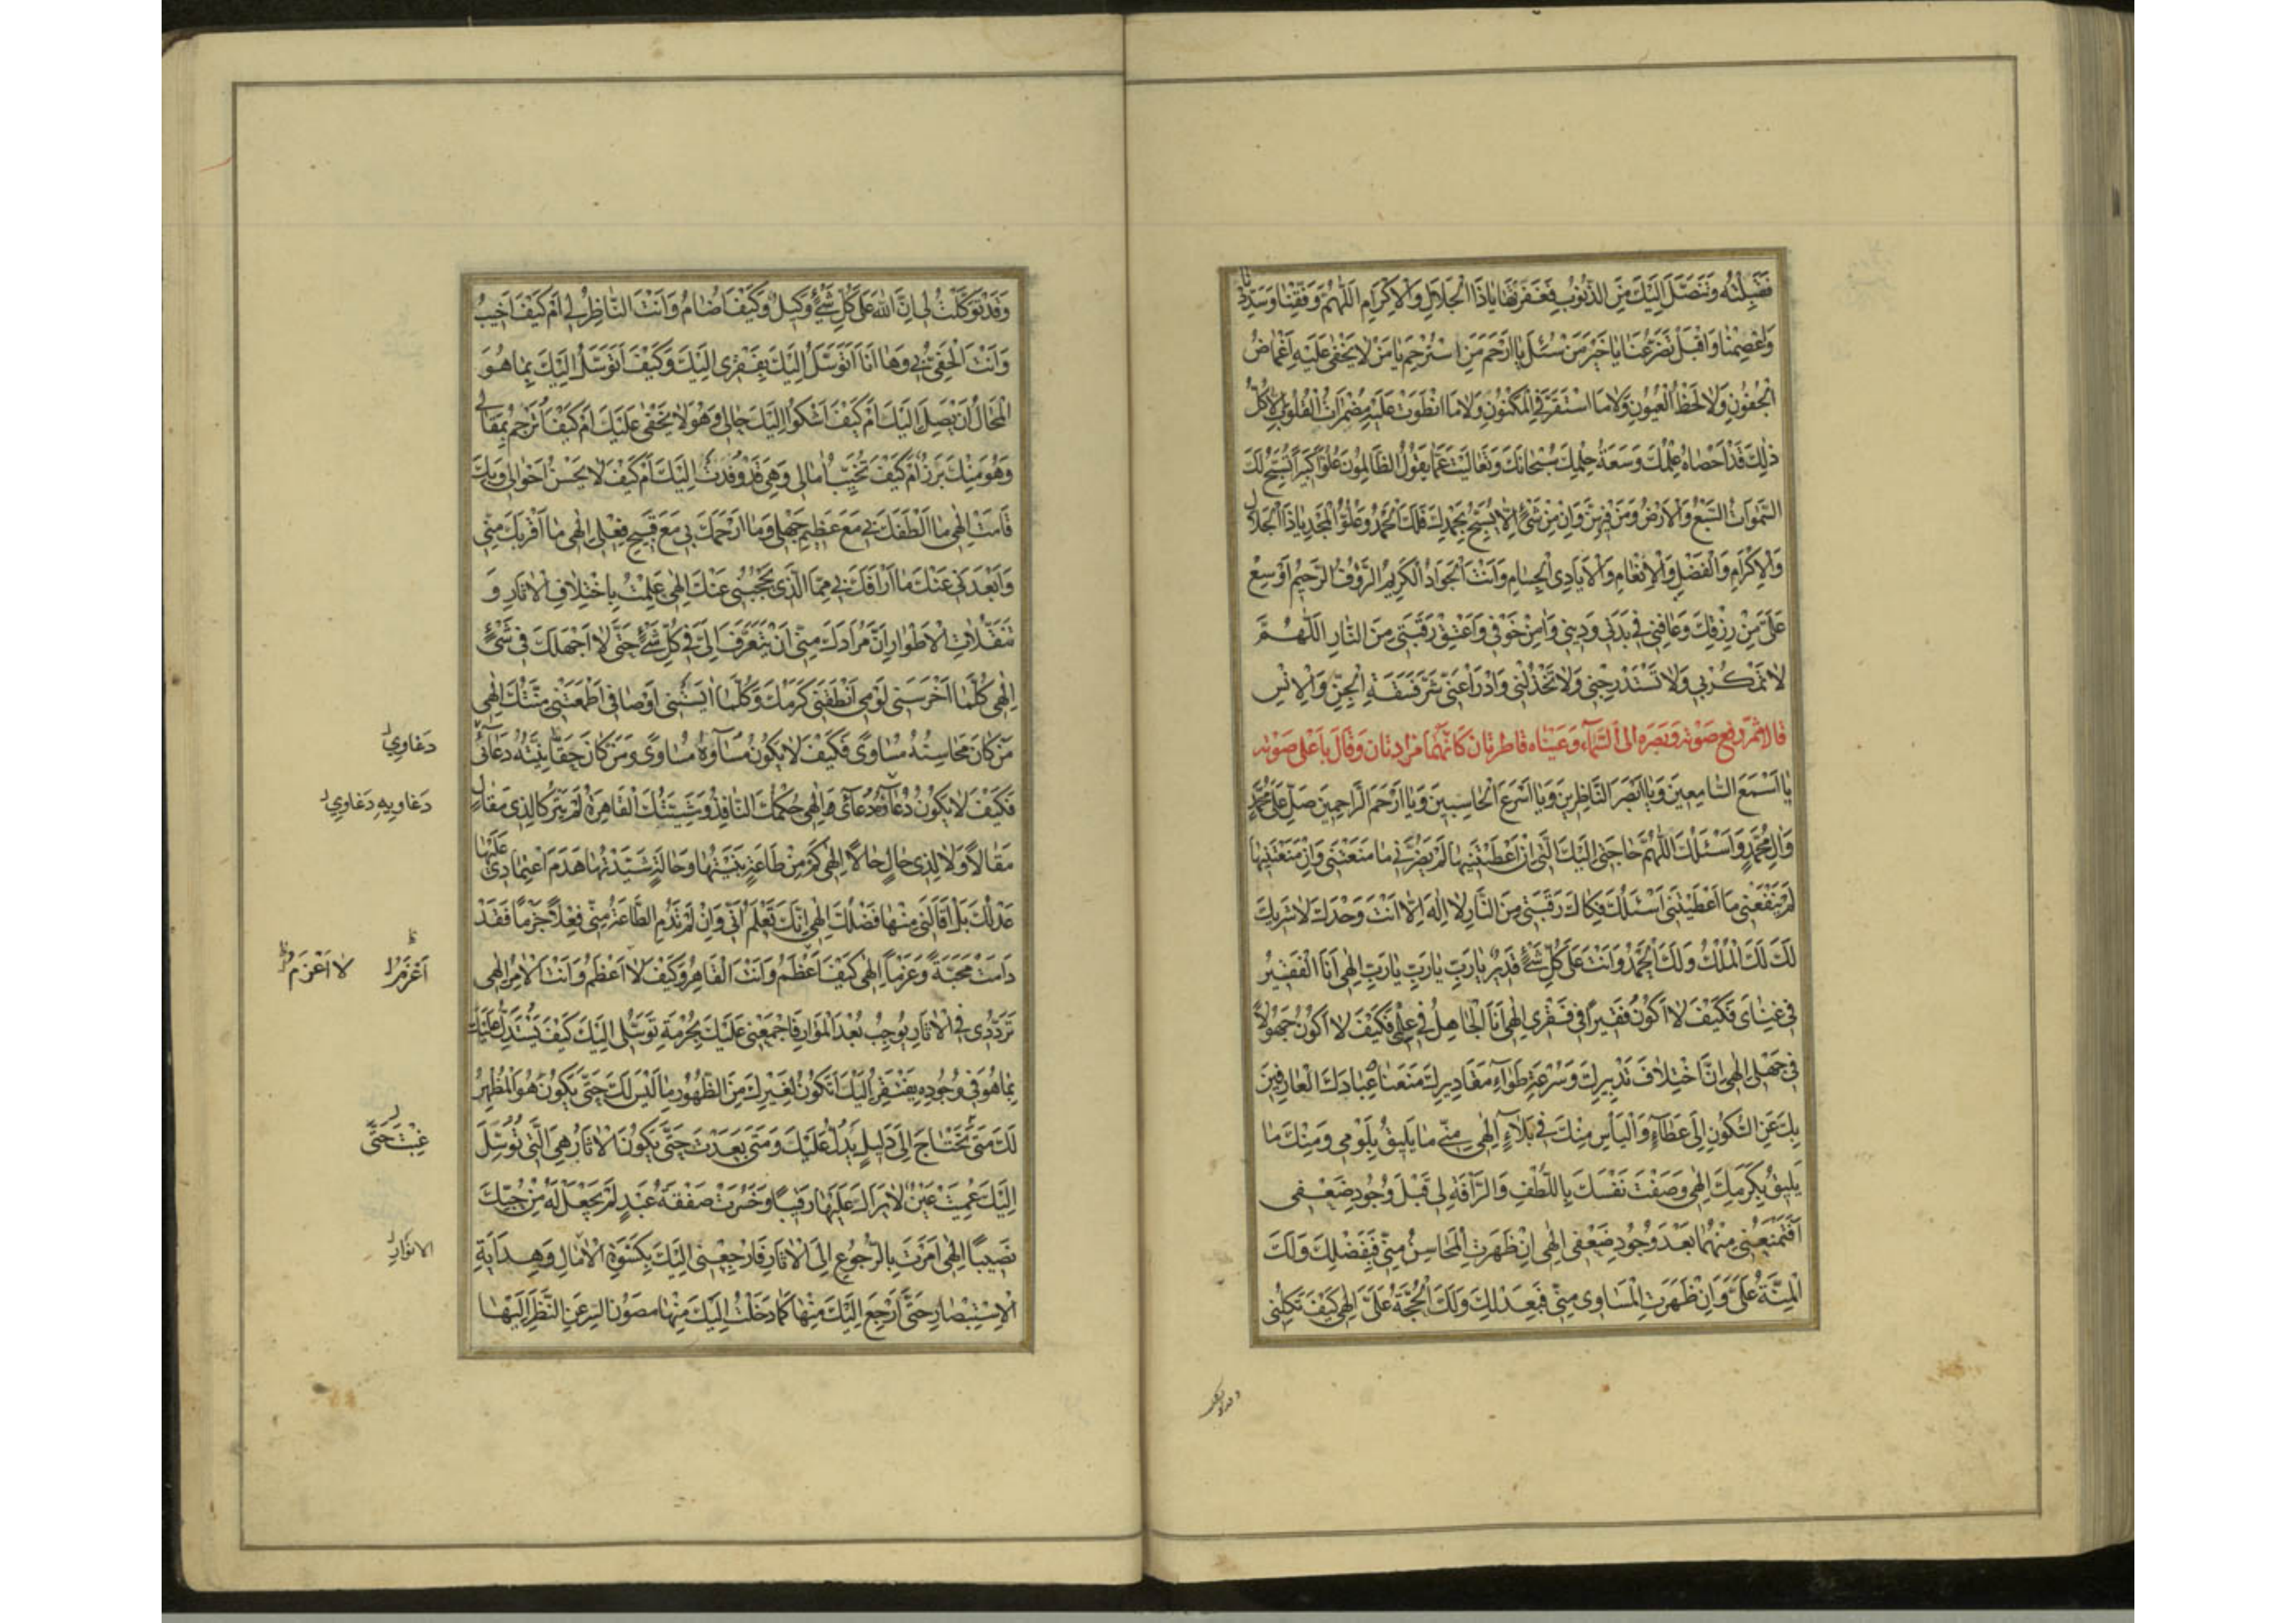 فَقَبِلْتَهُ وَتَنَصَّلَ اِلَيْكَ مِنَ الذُّنُوبِ فَغَفَرْتَهَا يَا ذَا الْجَلَالِ وَالْاِكْرَامِ اَللّٰهُمَّ وَفِّقْنَا وَسَدِّدْنَا
وَاعْصِمْنَا وَاقْبَلْ تَضَرُّعَنَا يَا خَيْرَ مَنْ سُئِلَ يَا اَرْحَمَ مَنِ اسْتُرْحِمَ يَا مَنْ لَا يَخْفٰى عَلَيْهِ اِغْمَاضُ
الْجُفُونِ وَلَا لَحْظُ الْعُيُونِ وَلَا مَا اسْتَقَرَّ فِي الْمَكْنُونِ وَلَا مَا انْطَوَتْ عَلَيْهِ مُضْمَرَاتُ الْقُلُوبِ اَلَا كُلُّ
ذٰلِكَ قَدْ اَحْصَاهُ عِلْمُكَ وَسَعَةُ حِلْمِكَ سُبْحَانَكَ وَتَعَالَيْتَ عَمَّا يَقُولُ الظَّالِمُونَ عُلُوًّا كَبِيرًا تُسَبِّحُ لَكَ
السَّمٰوَاتُ السَّبْعُ وَالْاَرْضُ وَمَنْ فِيهِنَّ وَاِنْ مِنْ شَيْءٍ اِلَّا يُسَبِّحُ بِحَمْدِكَ فَلَكَ الْحَمْدُ وَعُلُوُّ الْمَجْدِ يَا ذَا الْجَلَالِ
وَالْاِكْرَامِ وَالْفَضْلِ وَالْاِنْعَامِ وَالْاَيَادِي الْجِسَامِ وَاَنْتَ الْجَوَادُ الْكَرِيمُ الرَّؤُفُ الرَّحِيمُ اَوْسِعْ
عَلَيَّ مِنْ رِزْقِكَ وَعَافِنِي فِي بَدَنِي وَدِينِي وَاٰمِنْ خَوْفِي وَاَعْتِقْ رَقَبَتِي مِنَ النَّارِ اَللّٰهُمَّ
لَا تَمْكُرْ بِي وَلَا تَسْتَدْرِجْنِي وَلَا تَخْذُلْنِي وَادْرَأْ عَنِّي شَرَّ فَسَقَةِ الْجِنِّ وَالْاِنْسِ
قالا ثمّ رفع صوته وبصره الى السّماء وعيناه قاطرتان كانّهما مزادتان وقال باعلى صوته
يَا اَسْمَعَ السَّامِعِينَ وَيَا اَبْصَرَ النَّاظِرِينَ وَيَا اَسْرَعَ الْحَاسِبِينَ وَيَا اَرْحَمَ الرَّاحِمِينَ صَلِّ عَلٰى مُحَمَّدٍ
وَاٰلِ مُحَمَّدٍ وَاَسْئَلُكَ اللّٰهُمَّ حَاجَتِي اِلَيْكَ الَّتِي اِنْ اَعْطَيْتَنِيهَا لَمْ يَضُرَّنِي مَا مَنَعْتَنِي وَاِنْ مَنَعْتَنِيهَا
لَمْ يَنْفَعْنِي مَا اَعْطَيْتَنِي اَسْئَلُكَ فَكَاكَ رَقَبَتِي مِنَ النَّارِ لَا اِلٰهَ اِلَّا اَنْتَ وَحْدَكَ لَا شَرِيكَ
لَكَ لَكَ الْمُلْكُ وَلَكَ الْحَمْدُ وَاَنْتَ عَلٰى كُلِّ شَيْءٍ قَدِيرٌ يَا رَبِّ يَا رَبِّ يَا رَبِّ اِلٰهِي اَنَا الْفَقِيرُ
فِي غِنَايَ فَكَيْفَ لَا اَكُونُ فَقِيرًا فِي فَقْرِي اِلٰهِي اَنَا الْجَاهِلُ فِي عِلْمِي فَكَيْفَ لَا اَكُونُ جَهُولًا
فِي جَهْلِي اِلٰهِي اِنَّ اخْتِلَافَ تَدْبِيرِكَ وَسُرْعَةِ طَوَاءِ مَقَادِيرِكَ مَنَعَنَا عِبَادَكَ الْعَارِفِينَ
بِكَ عَنِ السُّكُونِ اِلٰى عَطَاءٍ وَالْيَأْسِ مِنْكَ فِي بَلَاءٍ اِلٰهِي مِنِّي مَا يَلِيقُ بِلَوْمِي وَمِنْكَ مَا
يَلِيقُ بِكَرَمِكَ اِلٰهِي وَصَفْتَ نَفْسَكَ بِاللُّطْفِ وَالرَّأْفَةِ لِي قَبْلَ وُجُودِ ضَعْفِي
اَفَتَمْنَعُنِي مِنْهُمَا بَعْدَ وُجُودِ ضَعْفِي اِلٰهِي اِنْ ظَهَرَتِ الْمَحَاسِنُ مِنِّي فَبِفَضْلِكَ وَلَكَ
الْمِنَّةُ عَلَيَّ وَاِنْ ظَهَرَتِ الْمَسَاوِي مِنِّي فَبِعَدْلِكَ وَلَكَ الْحُجَّةُ عَلَيَّ اِلٰهِي كَيْفَ تَكِلُنِي
وَقَدْ تَوَكَّلْتُ
وَقَدْ تَوَكَّلْتُ لِي اِنَّ اللّٰهَ عَلٰى كُلِّ شَيْءٍ وَكِيلٌ وَكَيْفَ اُضَامُ وَاَنْتَ النَّاظِرُ لِي اَمْ كَيْفَ اَخِيبُ
وَاَنْتَ الْحَفِيُّ بِي وَهَا اَنَا اَتَوَسَّلُ اِلَيْكَ بِفَقْرِي اِلَيْكَ وَكَيْفَ اَتَوَسَّلُ اِلَيْكَ بِمَا هُوَ
الْمَحَالُ اَنْ يَصِلَ اِلَيْكَ اَمْ كَيْفَ اَشْكُوا اِلَيْكَ حَالِي وَهُوَ لَا يَخْفٰى عَلَيْكَ اَمْ كَيْفَ اُتَرْجِمُ بِمَقَالِي
وَهُوَ مِنْكَ بَرَزَ اَمْ كَيْفَ تُخَيِّبُ اٰمَالِي وَهِيَ قَدْ وَفَدَتْ اِلَيْكَ اَمْ كَيْفَ لَا يَحْسُنُ اَحْوَالِي وَبِكَ
قَامَتْ اِلٰهِي مَا اَلْطَفَكَ بِي مَعَ عَظِيمِ جَهْلِي وَمَا اَرْحَمَكَ بِي مَعَ قَبِيحِ فِعْلِي اِلٰهِي مَا اَقْرَبَكَ مِنِّي
وَاَبْعَدَنِي عَنْكَ مَا اَرْاَفَكَ بِي مِمَّا الَّذِي يَحْجُبُنِي عَنْكَ اِلٰهِي عَلِمْتُ بِاخْتِلَافِ الْاٰثَارِ وَ
تَنَقُّلَاتِ الْاَطْوَارِ اَنَّ مُرَادَكَ مِنِّي اَنْ تَتَعَرَّفَ اِلَيَّ فِي كُلِّ شَيْءٍ حَتّٰى لَا اَجْهَلَكَ فِي شَيْءٍ
اِلٰهِي كُلَّمَا اَخْرَسَنِي لَوْمِي اَنْطَقَنِي كَرَمُكَ وَكُلَّمَا اٰيَسَتْنِي اَوْصَافِي اَطْمَعَتْنِي مِنَنُكَ اِلٰهِي
مَنْ كَانَ مَحَاسِنُهُ مَسَاوِيَ فَكَيْفَ لَا يَكُونُ مَسَاوِيهِ مَسَاوِيَ وَمَنْ كَانَ حَقَايِقُهُ دَعَاوِيَ
دَعَاوِيَ
فَكَيْفَ لَا يَكُونُ دُعَاؤُهُ دُعَائِي اِلٰهِي حُكْمُكَ النَّافِذُ وَمَشِيَّتُكَ الْقَاهِرَةُ لَمْ يَتْرُكَا لِذِي مَقَالٍ
دَعَاوِيهِ دَعَاوِيَ
مَقَالًا وَلَا لِذِي حَالٍ حَالًا اِلٰهِي كَمْ مِنْ طَاعَةٍ بَنَيْتُهَا وَحَالَةٍ شَيَّدْتُهَا هَدَمَ اعْتِمَادِي عَلَيْهَا
عَدْلُكَ بَلْ اَقَالَنِي مِنْهَا فَضْلُكَ اِلٰهِي اِنَّكَ تَعْلَمُ اَنِّي وَاِنْ لَمْ تَدُمِ الطَّاعَةُ مِنِّي فِعْلًا جَزْمًا فَقَدْ
دَامَتْ مَحَبَّةً وَعَزْمًا اِلٰهِي كَيْفَ اَعْظَمُ وَاَنْتَ الْقَاهِرُ وَكَيْفَ لَا اَعْظَمُ وَاَنْتَ الْاٰمِرُ اِلٰهِي
اَعْزِمُ لَا اَعْزِمُ
تَرَدُّدِي فِي الْاٰثَارِ يُوجِبُ بُعْدَ الْمَزَارِ فَاجْمَعْنِي عَلَيْكَ بِحُرْمَةِ تَوَسُّلِي اِلَيْكَ كَيْفَ يُسْتَدَلُّ عَلَيْكَ
بِمَا هُوَ فِي وُجُودِهِ مُفْتَقِرٌ اِلَيْكَ اَيَكُونُ لِغَيْرِكَ مِنَ الظُّهُورِ مَا لَيْسَ لَكَ حَتّٰى يَكُونَ هُوَ الْمُظْهِرُ
لَكَ مَتٰى تَحْتَاجُ اِلٰى دَلِيلٍ يَدُلُّ عَلَيْكَ وَمَتٰى بَعَدْتَ حَتّٰى يَكُونَ الْاٰثَارُ هِيَ الَّتِي تُوصِلُ
غِبْتَ حَتّٰى
اِلَيْكَ عَمِيَتْ عَيْنٌ لَا تَرَاكَ عَلَيْهَا رَقِيبًا وَخَسِرَتْ صَفْقَةُ عَبْدٍ لَمْ تَجْعَلْ لَهُ مِنْ حُبِّكَ
نَصِيبًا اِلٰهِي اَمَرْتَ بِالرُّجُوعِ اِلَى الْاٰثَارِ فَارْجِعْنِي اِلَيْكَ بِكِسْوَةِ الْاٰمَالِ وَهِدَايَةِ
الانوار
الْاِسْتِبْصَارِ حَتّٰى اَرْجِعَ اِلَيْكَ مِنْهَا كَمَا دَخَلْتُ اِلَيْكَ مِنْهَا مَصُونَ السِّرِّ عَنِ النَّظَرِ اِلَيْهَا